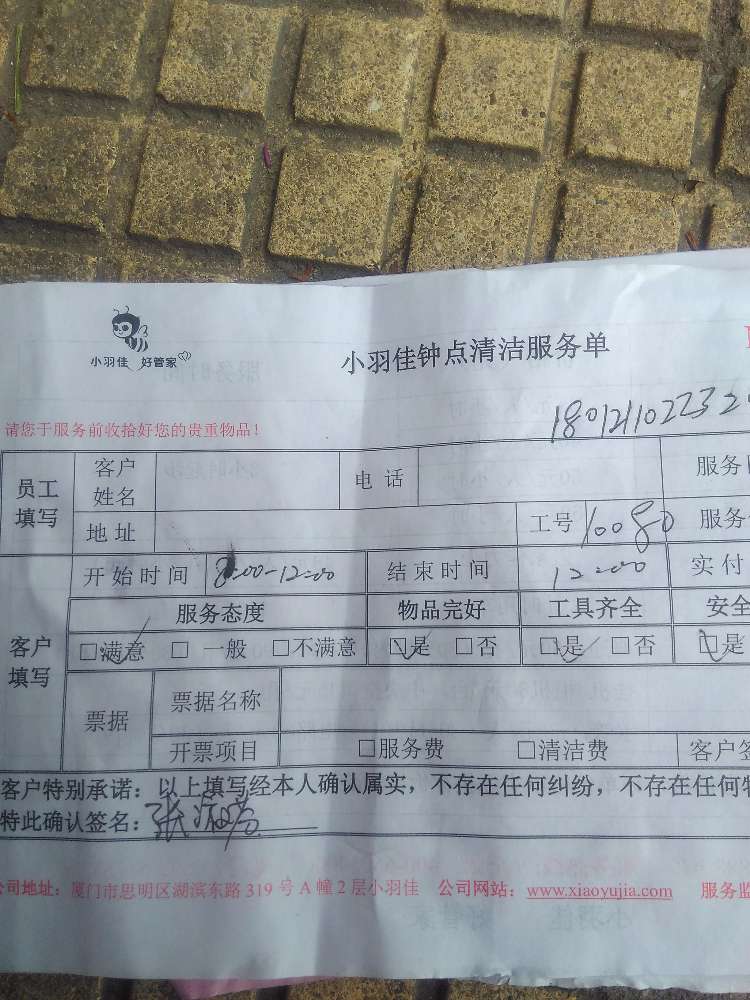 小羽佳 好管家
小羽佳钟点清洁服务单
请您于服务前收拾好您的贵重物品！
180121102232
员工填写 客户姓名 电话 服务
地址 工号 10080 服务
开始时间 8:00-12:00 结束时间 12:00 实付
客户填写 服务态度 物品完好 工具齐全 安全
□满意 □一般 □不满意 □是 □否 □是 □否 □是
票据 票据名称
开票项目 □服务费 □清洁费 客户签
客户特别承诺：以上填写经本人确认属实，不存在任何纠纷，不存在任何
特此确认签名：张
公司地址：厦门市思明区湖滨东路319号A幢2层小羽佳 公司网站：www.xiaoyujia.com 服务监